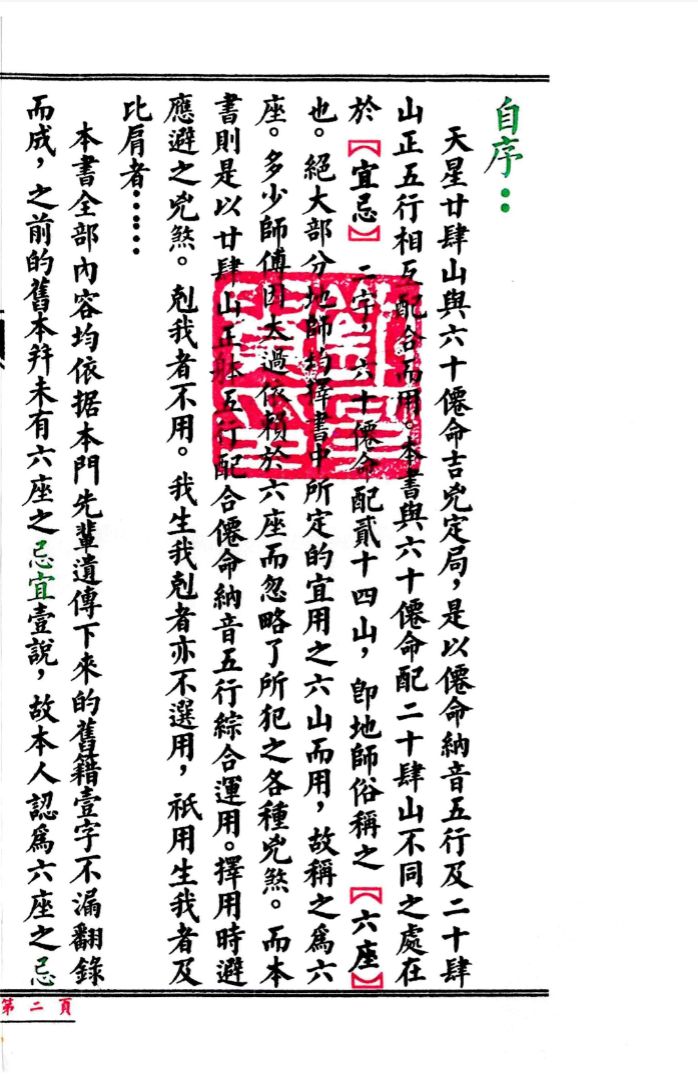 自序：
天星廿肆山與六十僊命吉兇定局，是以僊命納音五行及二十肆
山正五行相互配合而用。本書與六十僊命配二十肆山不同之處在
於【宜忌】二字，六十僊命配貳十四山，即地師俗稱之【六座】
也。絕大部分地師均擇書中所定的宜用之六山而用，故稱之為六
座。多少師傅因太過依賴於六座而忽略了所犯之各種兇煞。而本
書則是以廿肆山正躰五行配合僊命納音五行綜合運用。擇用時避
應避之兇煞。剋我者不用。我生我剋者亦不選用，祇用生我者及
比肩者……
本書全部內容均依据本門先輩遺傳下來的舊籍壹字不漏翻錄
而成，之前的舊本幷未有六座之忌宜壹說，故本人認爲六座之忌
第二頁